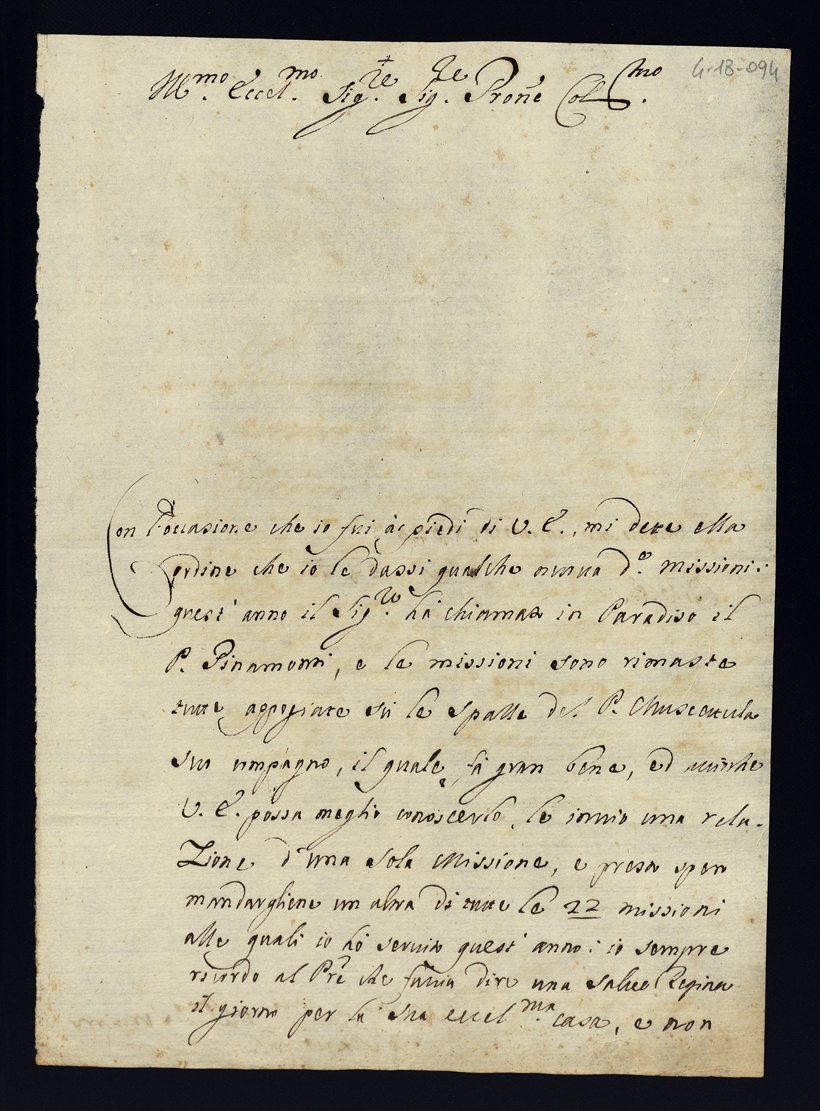 Ill.mo Eccel.mo Sig.re Sig.re Prone Col.mo
4-18-094
Con l'occasione che io fui a' piedi di V. E., mi dete ella
ordine che io le dassi qualche nuova d.e missioni:
quest' anno il Sig.re ha chiamato in Paradiso il
P. Pinamonti, e le missioni sono rimaste
tutte appogiate su le spalle del P. Muscettula
suo compagno, il quale fà gran bene, ed accioche
V. E. possa meglio conoscerlo, le invio una rela-
Zione d'una sola Missione, e presto spero
mandargliene un altra di tutte le 22 missioni
alle quali io hò servito quest' anno: io sempre
ricordo al Pre che faccia dire una Salve Regina
il giorno per la sua eccel.ma casa, e non